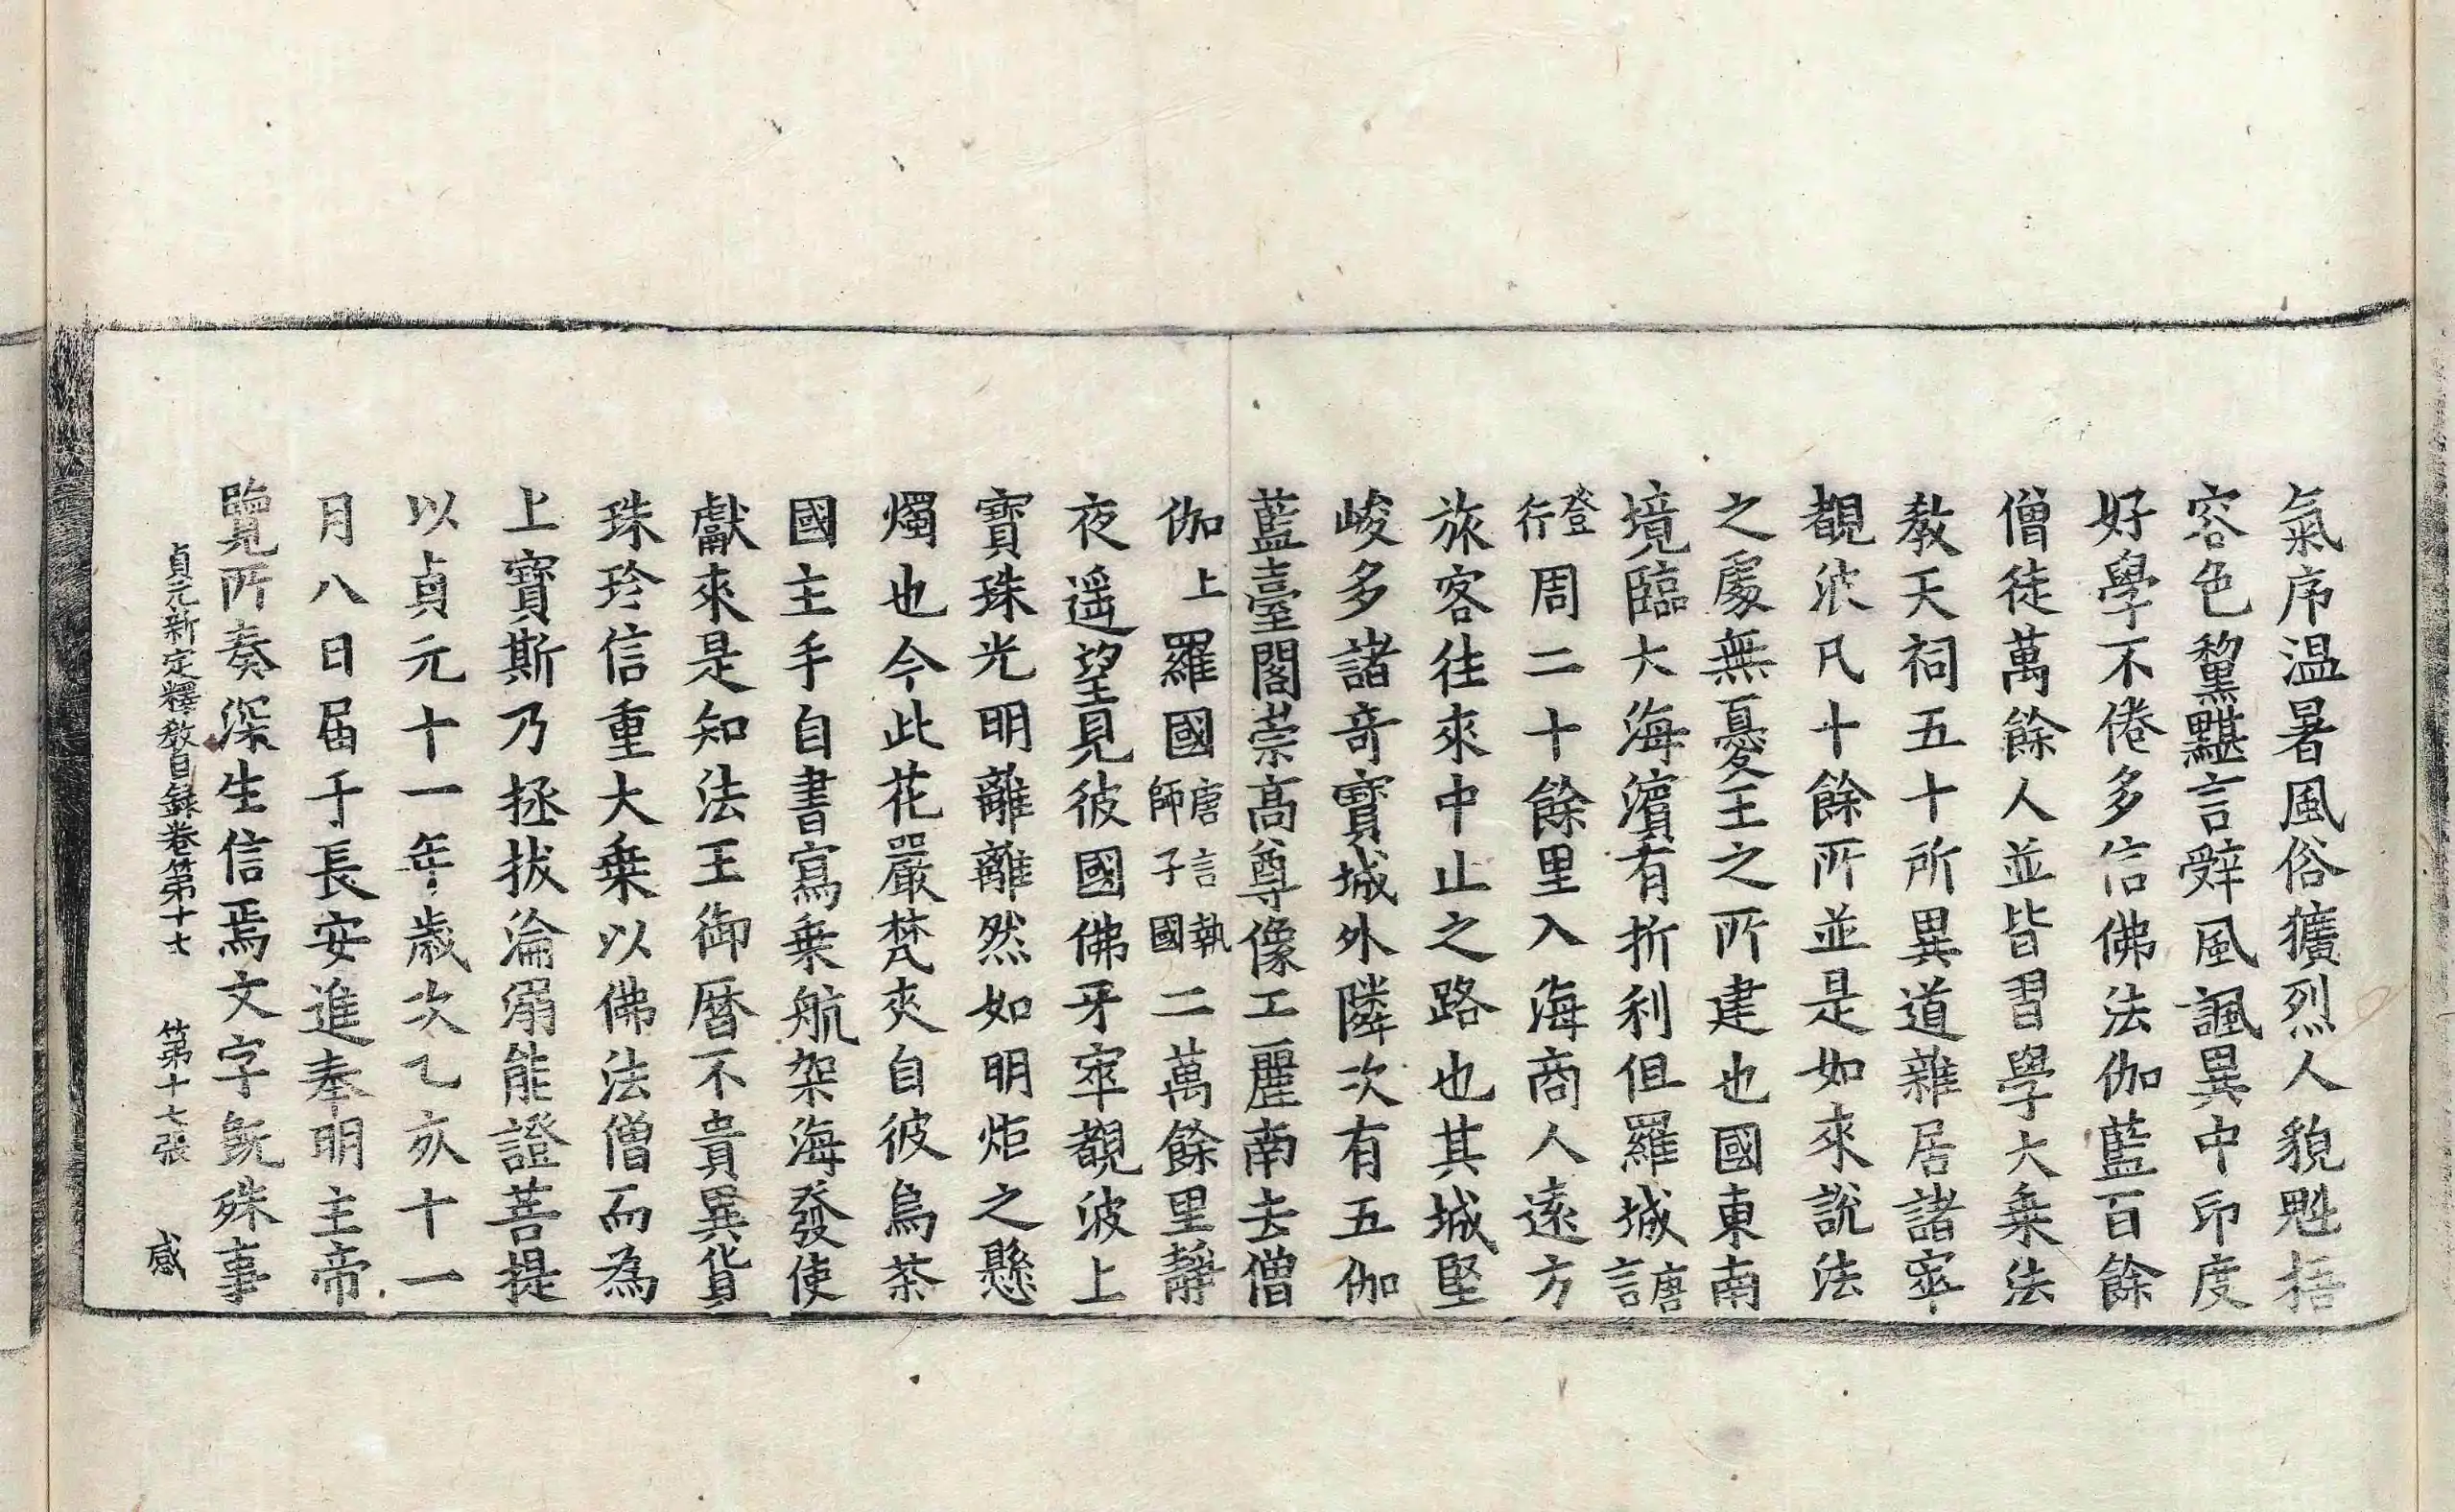 氣序温暑風俗獷烈人貌魁梧
容色黧黮言辝風諷異中印度
好學不倦多信佛法伽藍百餘
僧徒萬餘人並皆習學大乗法
教天祠五十所異道雜居諸窣
覩波凡十餘所並是如來說法
之處無憂王之所建也國東南
境臨大海濱有折利但羅城唐言
發行周二十餘里入海商人遠方
旅客往來中止之路也其城堅
峻多諸奇寶城外隣次有五伽
藍臺閣崇高尊像工麗南去僧
伽上羅國唐言執師子國二萬餘里靜
夜遥望見彼國佛牙窣覩波上
寶珠光明離離然如明炬之懸
燭也今此花嚴梵夾自彼烏荼
國主手自書寫乗航架海發使
獻來是知法王御曆不貴異貨
珠珍信重大乗以佛法僧而為
上寶斯乃拯拔淪溺能證菩提
以貞元十一年歲次乙亥十一
月八日届于長安進奉明主帝
覽所奏深生信焉文字旣殊事
貞元新定釋教目録卷第十七 第十七張 感